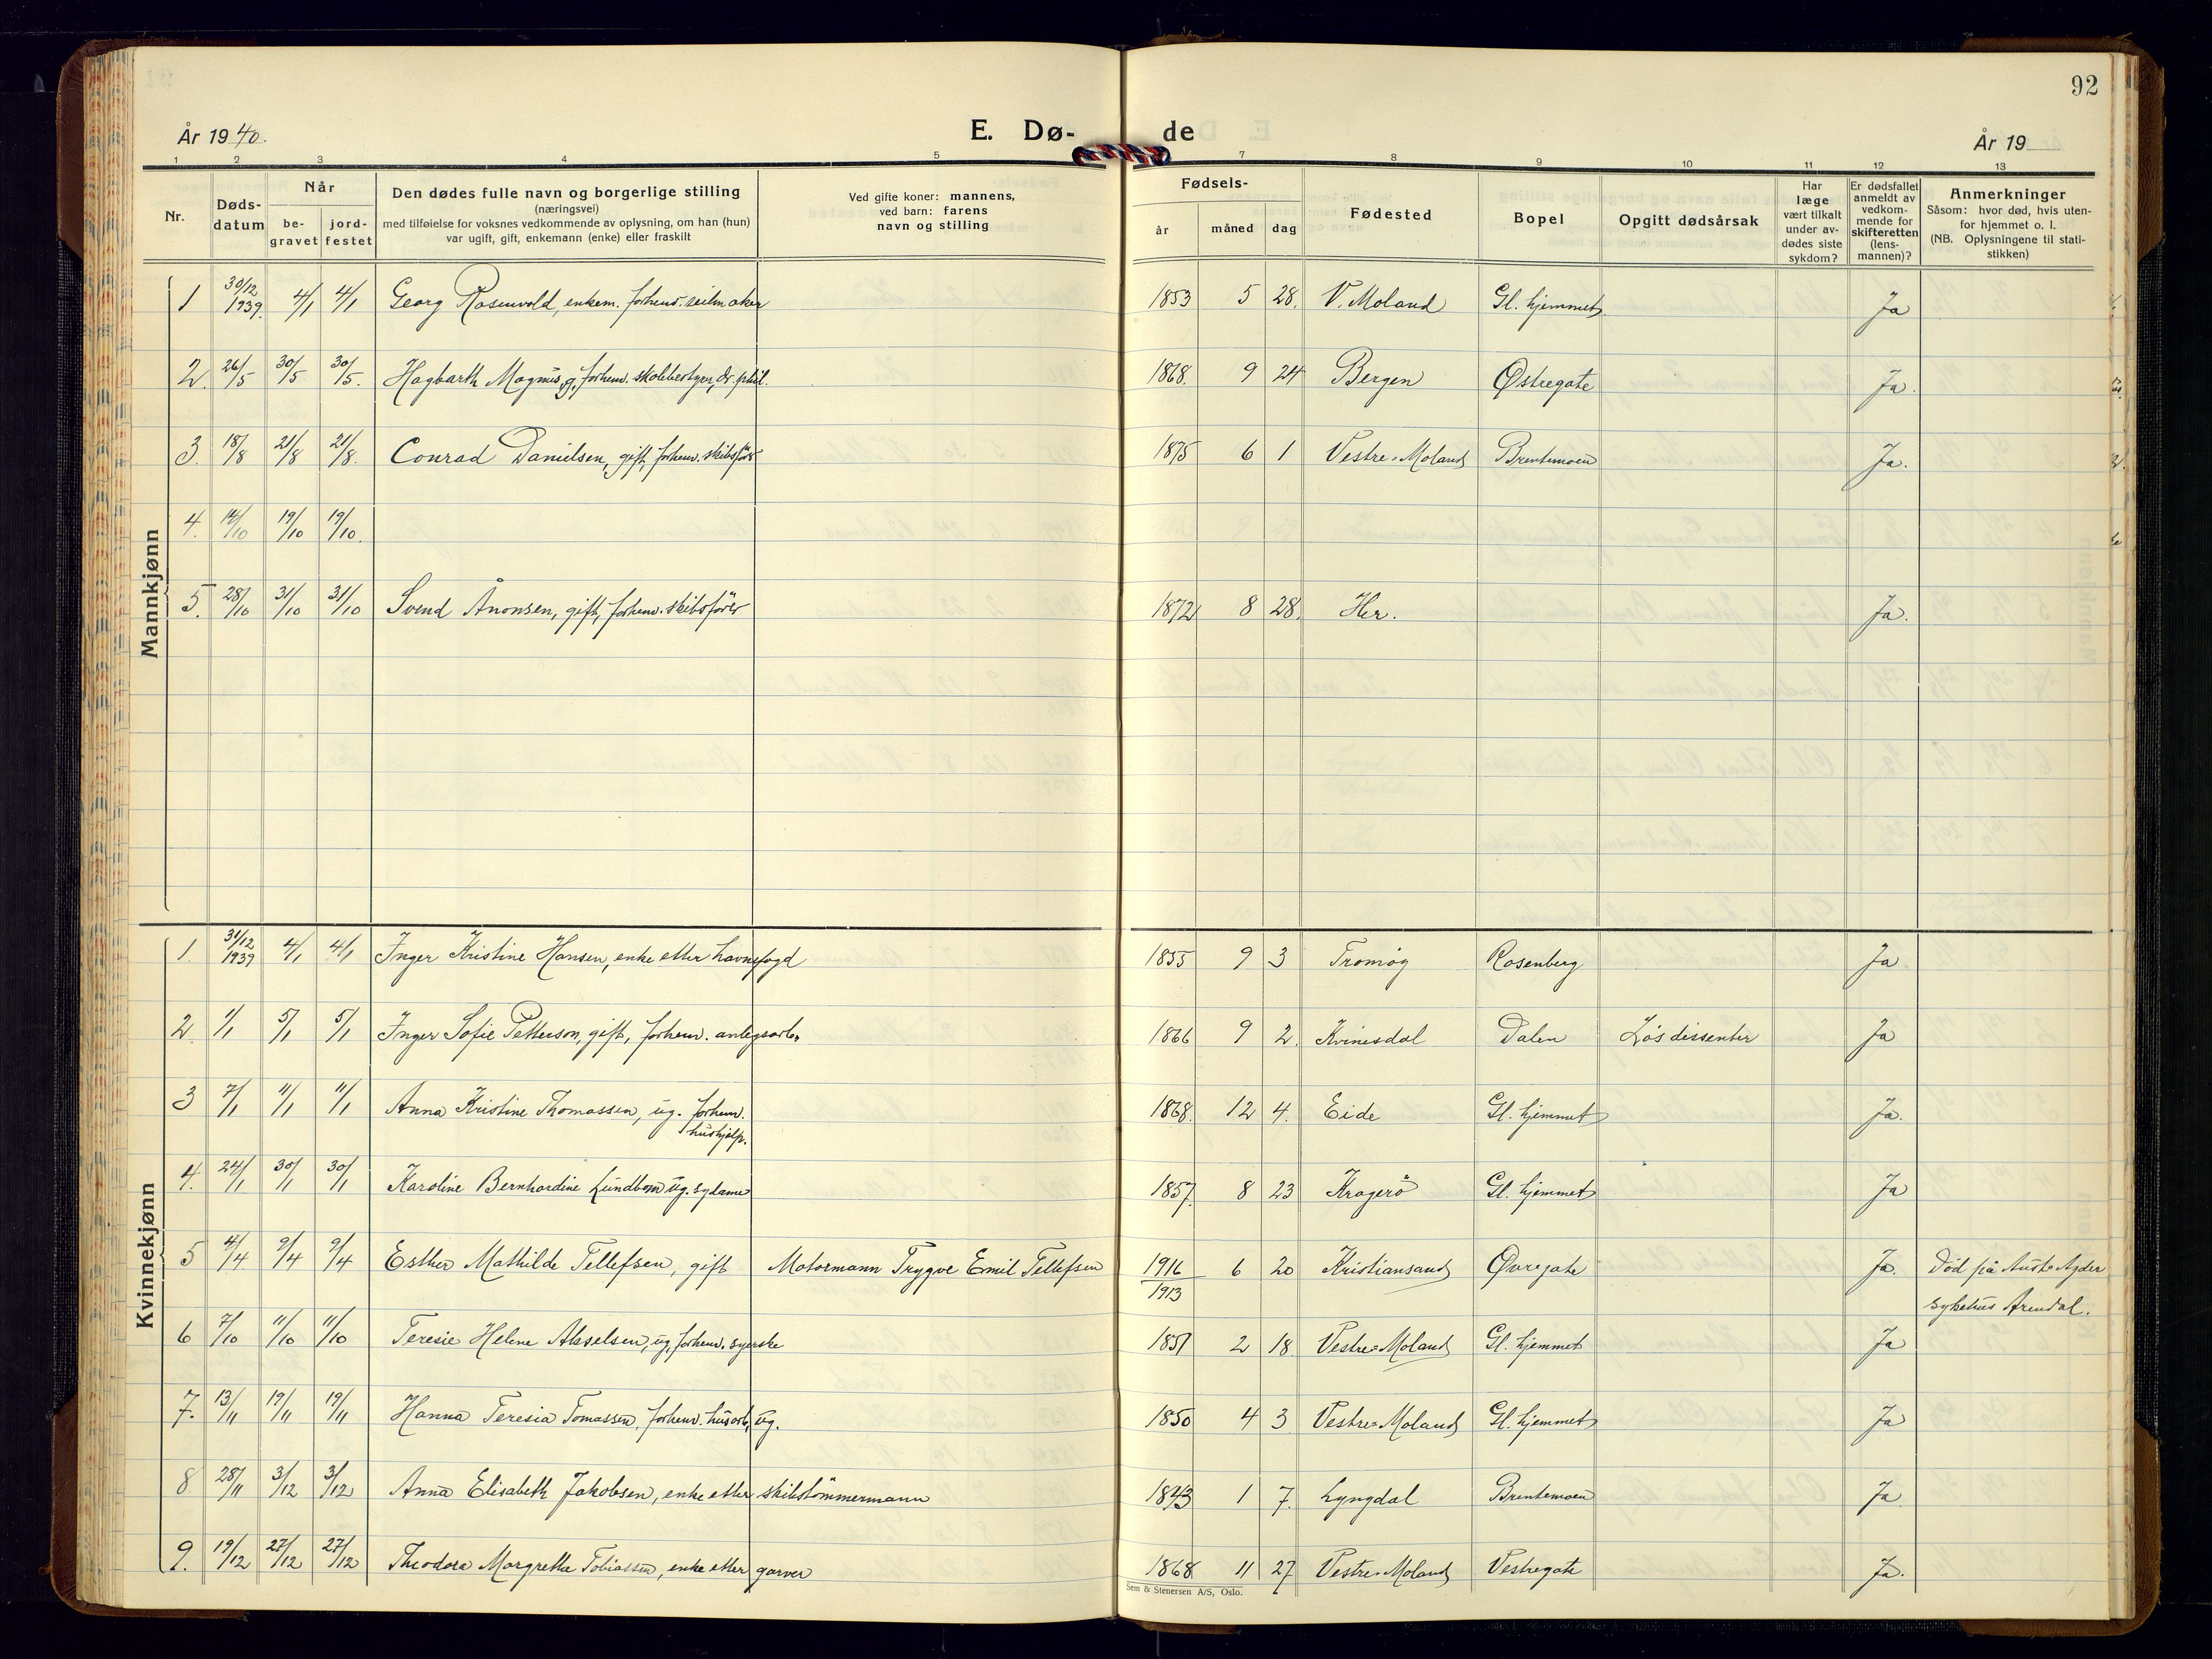 92
År 1940.
E. Dø-
de
År 19
1 2 3 4 5 7 8 9 10 11 12 13
Nr.
Døds-
datum
Når
be-
gravet
jord-
festet
Den dødes fulle navn og borgerlige stilling
(næringsvei)
med tilføielse for voksnes vedkommende av oplysning, om han (hun)
var ugift, gift, enkemann (enke) eller fraskilt
Ved gifte koner: mannens,
ved barn: farens
navn og stilling
Fødsels-
år
måned
dag
Fødested
Bopel
Opgitt dødsårsak
Har
læge
vært tilkalt
under av-
dødes siste
sykdom?
Er dødsfallet
anmeldt av
vedkom-
mende for
skifteretten
(lens-
mannen)?
Anmerkninger
Såsom: hvor død, hvis uten-
for hjemmet o. l.
(NB. Oplysningene til stati-
stikken)
Mannkjønn
1 30/12 1939. 4/1 4/1 Georg Rosenvold, enkem. forhenv. seilmaker 1853 5 28. V. Moland Gl. hjemmet Ja
2. 26/5 30/5 30/5. Hagbarth Magnus, g, forhenv. skolebestyrer, dr. phil. 1868. 9 24 Bergen Østregate Ja.
3. 18/8 21/8 21/8. Conrad Danielsen, gift, forhenv. skibsfør 1875 6 1 Vestre-Moland Brentemoen Ja.
4. 14/10 19/10 19/10.
5. 28/10 31/10 31/10 Svend Ånonsen, gift, forhenv. skibsförer 1872 8 28. Her. Ja.
Kvinnekjønn
1. 31/12 1939 4/1 4/1 Inger Kristine Hansen, enke etter havnefogd 1855 9 3 Tromøy Rosenberg Ja
2. 1/1 5/1 5/1 Inger Sofie Petterson, gift, forhenv. anlegsarb. 1866 9 2. Kvinesdal Dalen Løs dissenter Ja
3 7/1 11/1 11/1 Anna Kristine Thomassen, ug. forhenv.
hushjelp. 1868. 12 4. Eide Gl. hjemmet Ja.
4. 24/1 30/1 30/1 Karoline Bernhardine Lundbom ug. sydame 1857 8 23 Kragerö Gl. hjemmet Ja
5 4/4 9/4 9/4 Esther Mathilde Tellefsen, gift Motormann Trygve Emil Tellefsen 1916 6 20 Kristiansand Øvregate Ja. Död på Aust-Agder
1913 sykehus Arendal.
6 7/10 11/10 11/10 Teresie Helene Akselsen, ug, forhenv. syerske 1851 2 18. Vestre-Moland Gl. hjemmet Ja
7. 13/11 19/11 19/11 Hanna Teresia Tomassen, forhenv. husarb, ug. 1850 4 3 Vestre-Moland Gl. hjemmet Ja
8 28/11 3/12 3/12 Anna Elisabeth Jakobsen, enke etter skibstömmermann 1843 1 7. Lyngdal Brentemoen Ja
9. 19/12 27/12 27/12 Theodora Margrethe Tobiassen, enke etter garver 1868 11 27 Vestre-Moland Vestregate Ja.
Sem & Stenersen A/S, Oslo.